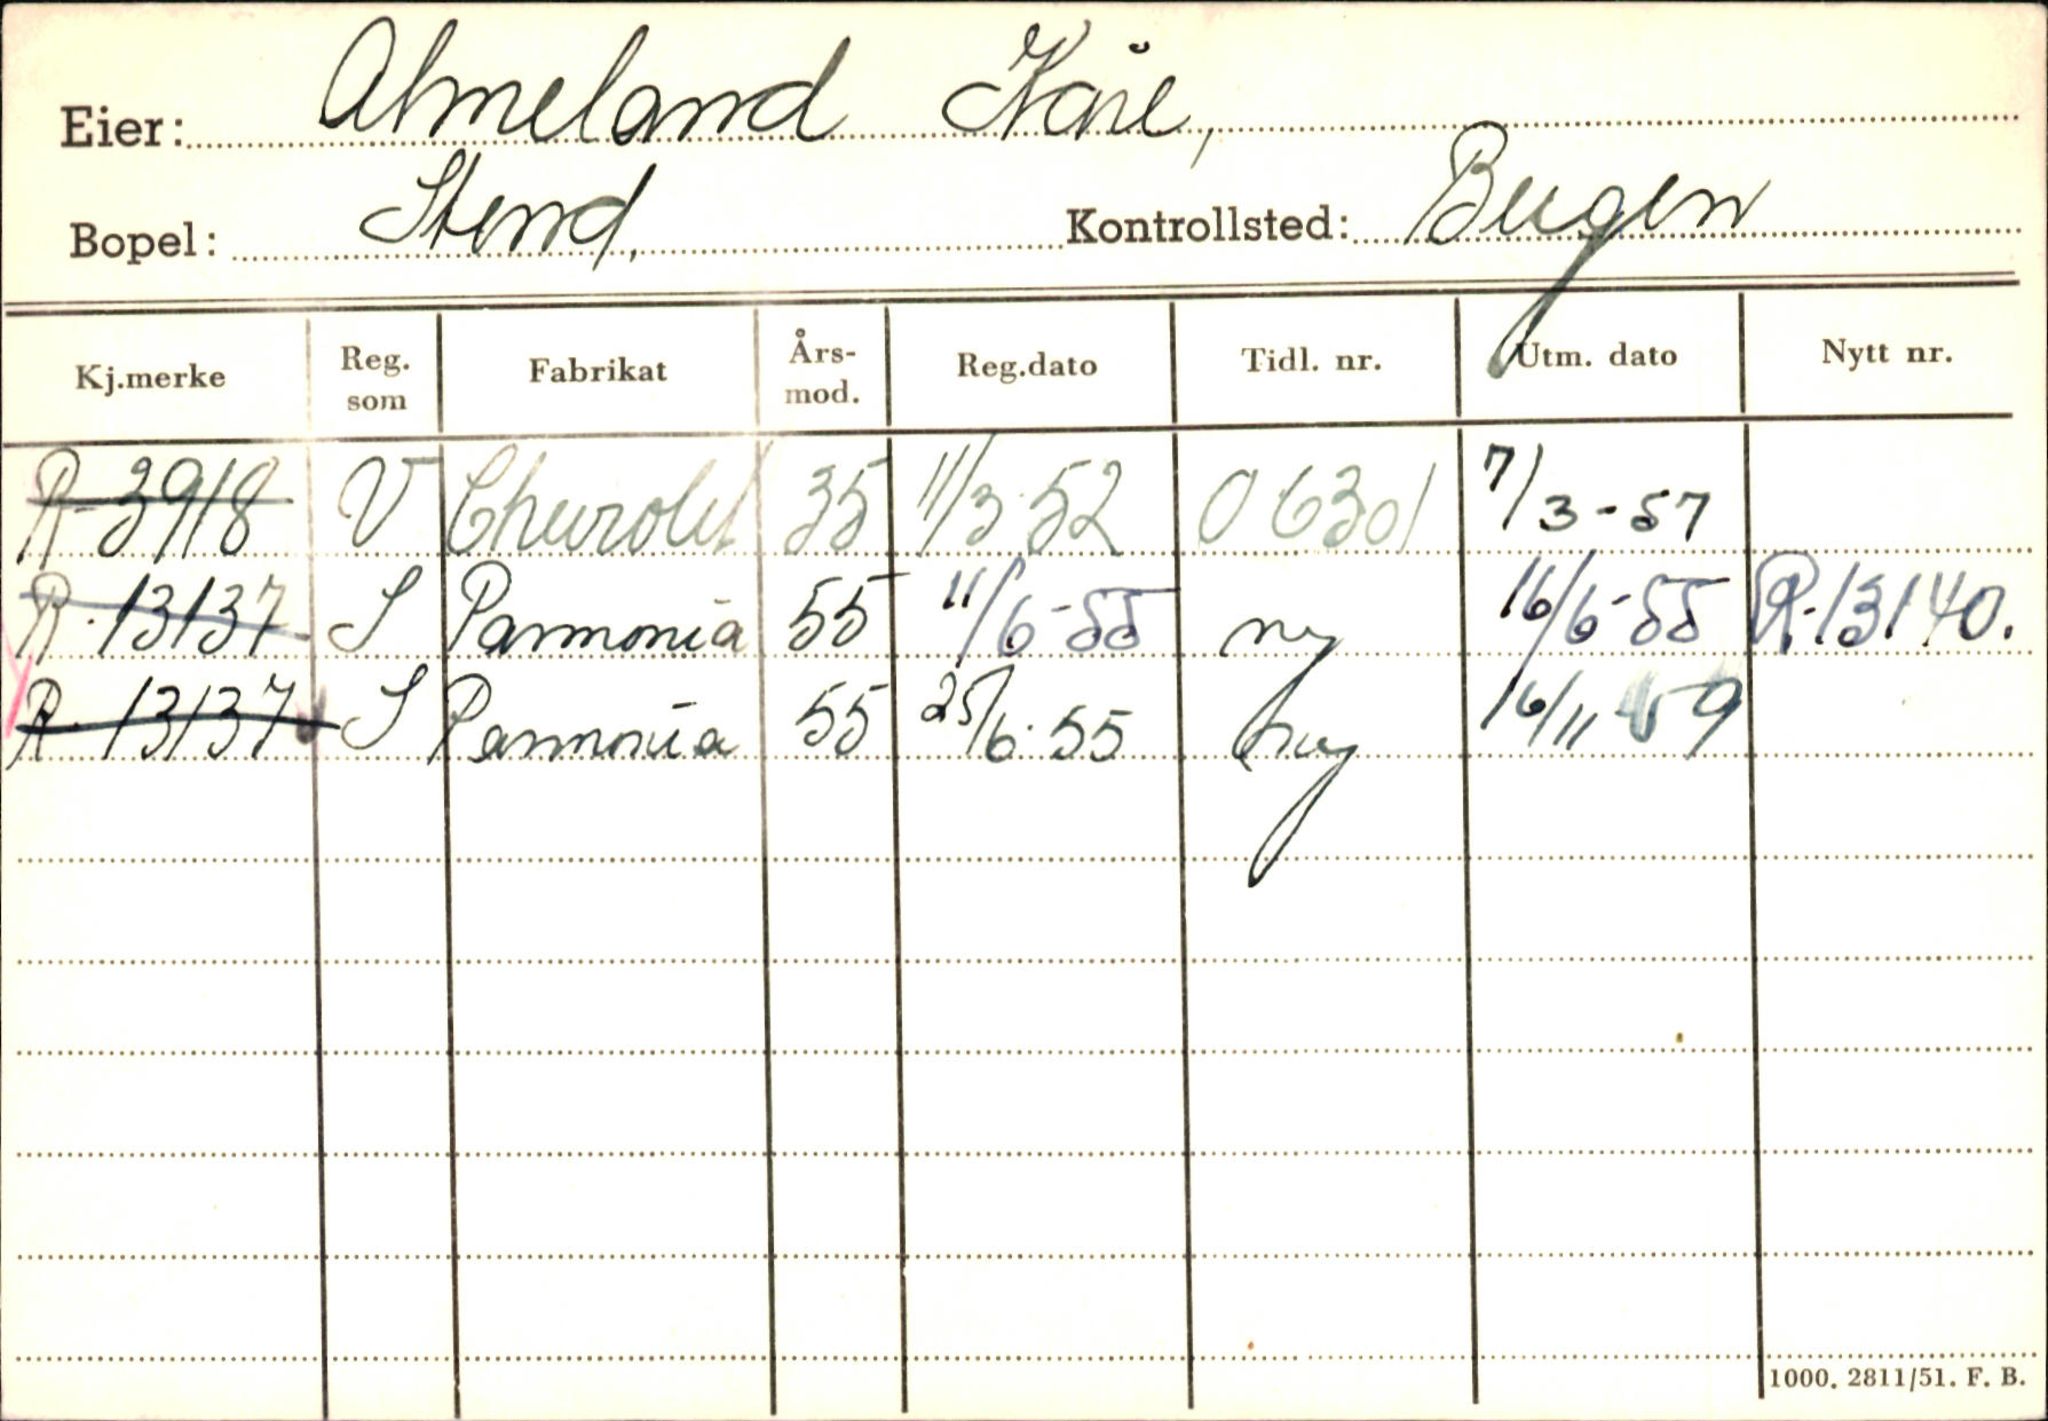 Eier: Almeland Kåre,
Bopel: Stend, Kontrollsted: Bergen
Kj.merke Reg. som Fabrikat Års-mod. Reg.dato Tidl. nr. Utm. dato Nytt nr.
R-3918 V Chevrolet 35 11/3-52 O 6301 7/3-57
R-13137 S Pannonia 55 11/6-55 ny 16/6-55 R-13140.
R-13137 S Pannonia 55 25/6-55 ny 16/11 59
1000. 2811/51. F. B.